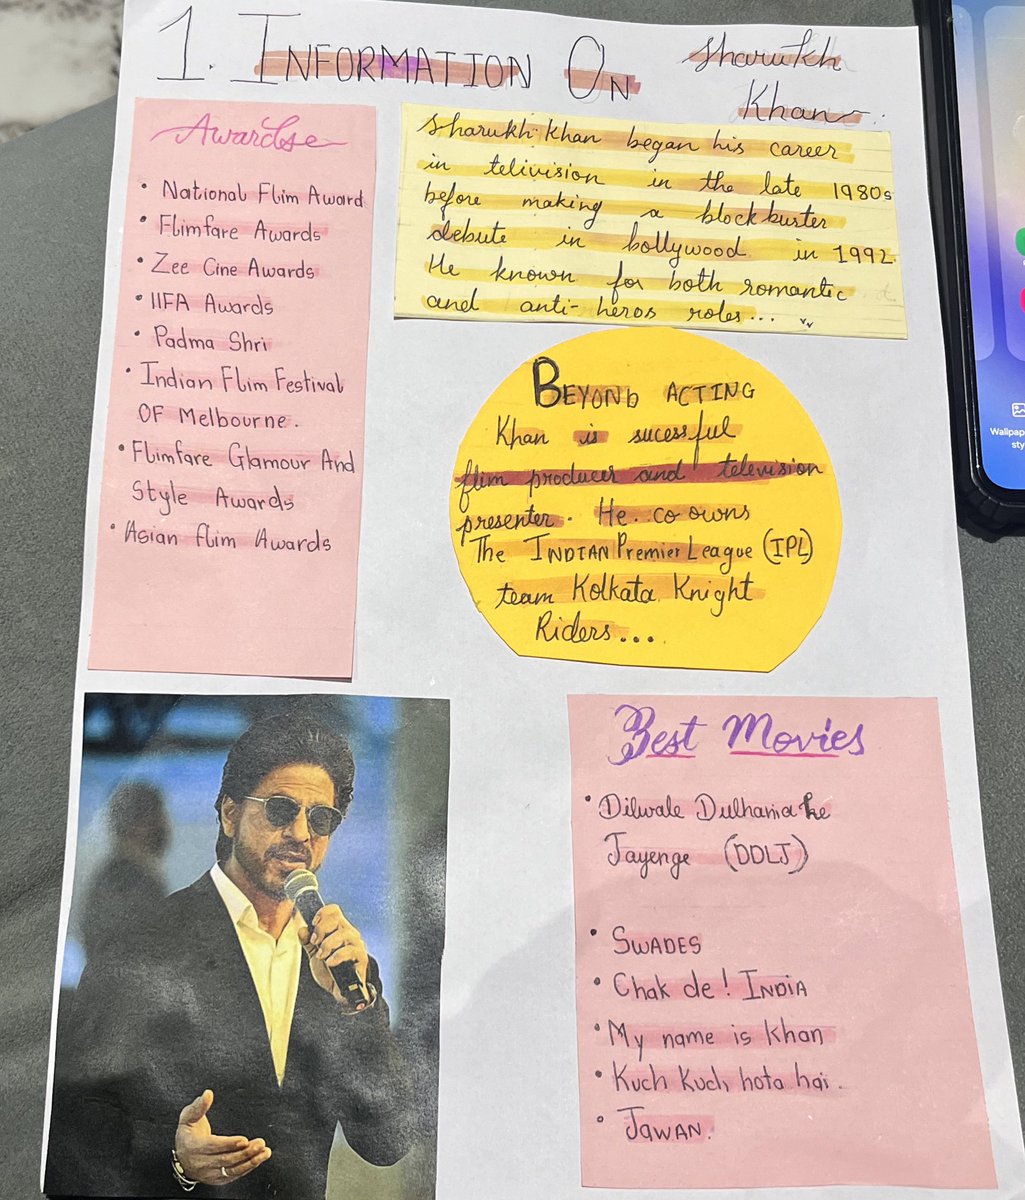 1. INFORMATION ON Sharukh
Khan
Awardse
• National Flim Award
• Flimfare Awards
• Zee Cine Awards
• IIFA Awards
• Padma Shri
• Indian Flim Festival
OF Melbourne.
• Flimfare Glamour And
Style Awards
• Asian Flim Awards
Sharukh Khan began his career
in telivision in the late 1980s
before making a blockbuster
debute in bollywood in 1992.
He known for both romantic
and anti-heros roles...
BEYOND ACTING
Khan is sucessful
flim producer and television
presenter. He co owns
The INDIAN Premier League (IPL)
team Kolkata Knight
Riders...
Best Movies
• Dilwale Dulhania he
Jayenge (DDLJ)
• SWADES
• Chak de! INDIA
• My name is Khan
• Kuch Kuch hota hai.
• JAWAN.